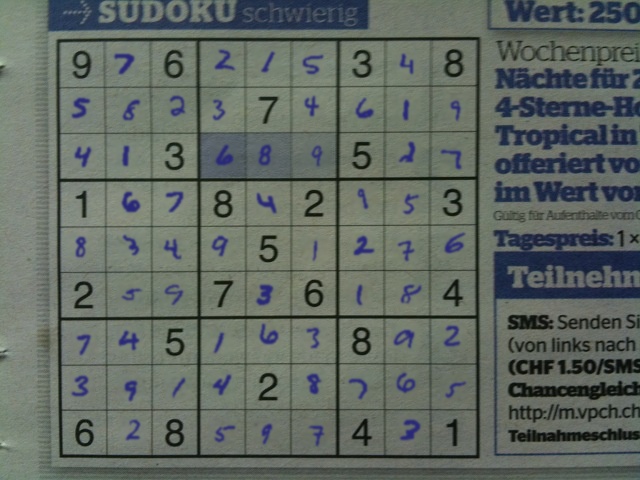 SUDOKU schwierig
9 7 6 2 1 5 3 4 8
5 8 2 3 7 4 6 1 9
4 1 3 6 8 9 5 2 7
1 6 7 8 4 2 9 5 3
8 3 4 9 5 1 2 7 6
2 5 9 7 3 6 1 8 4
7 4 5 1 6 3 8 9 2
3 9 1 4 2 8 7 6 5
6 2 8 5 9 7 4 3 1
Wert: 250
Wochenprei
Nächte für 2
4-Sterne-Ho
Tropical in
offeriert vo
im Wert von
Gültig für Aufenthalte vom
Tagespreis: 1 ×
Teilnehm
SMS: Senden Si
(von links nach
(CHF 1.50/SMS
Chancengleich
http://m.vpch.ch
Teilnahmeschlus